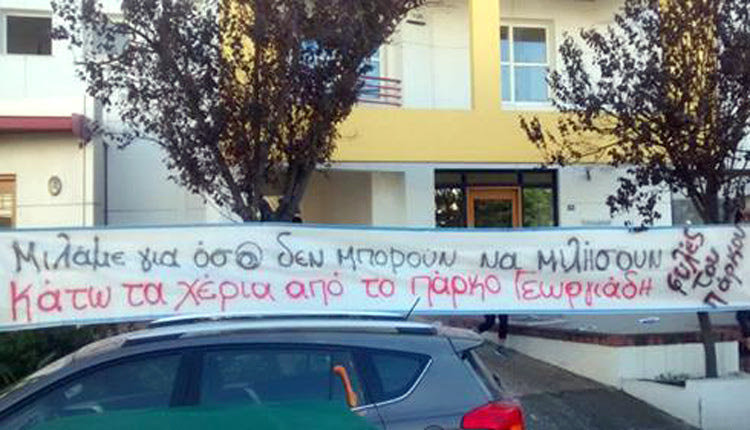 Μιλάμε για όσ@ δεν μπορούν να μιλήσουν
Κάτω τα χέρια από το πάρκο Γεωργιάδη
φυλές
του
πάρκου